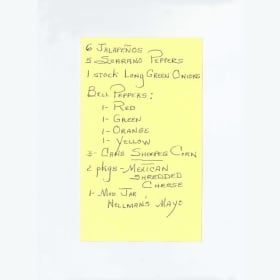 6 Jalapeños
5 Serrano Peppers
1 stock Long Green Onions
Bell Peppers:
1- Red
1- Green
1- Orange
1- Yellow
3- Cans Corn
2 pkgs - Mexican
Shredded
Cheese
1- Med Jar
Hellman's Mayo